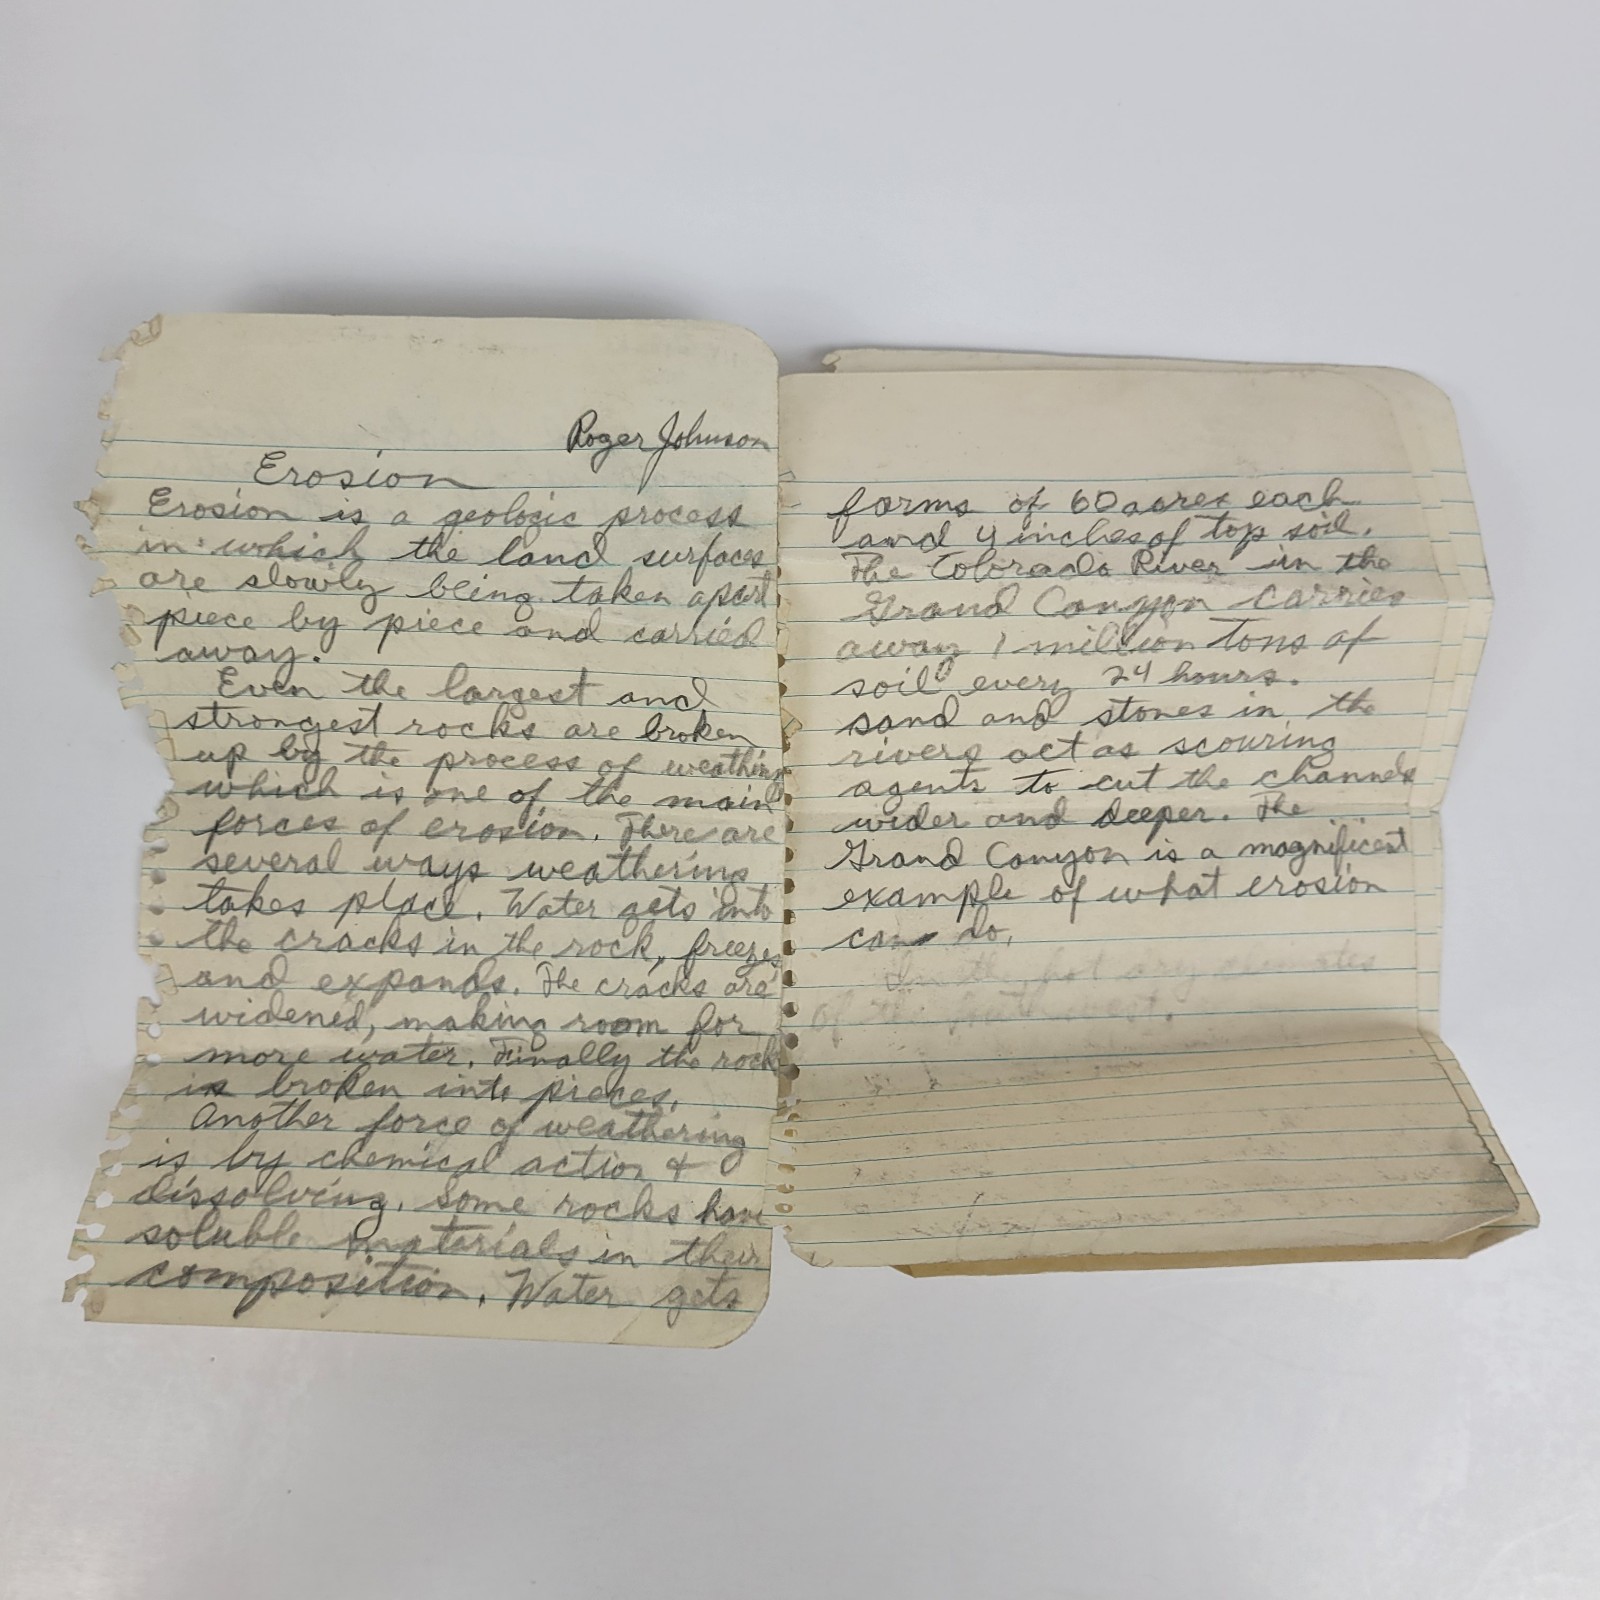 Roger Johnson
Erosion
Erosion is a geologic process
in which the land surfaces
are slowly being taken apart
piece by piece and carried
away.
Even the largest and
strongest rocks are broken
up by the process of weathing
which is one of the main
forces of erosion. There are
several ways weathering
takes place. Water gets into
the cracks in the rock, freezes
and expands. The cracks are
widened, making room for
more water. Finally the rock
is broken into pieces.
Another force of weathering
is by chemical action &
dissolving. Some rocks have
soluble materials in their
composition. Water gets
farms of 60 acres each
and 4 inches of top soil.
The Colorado River in the
Grand Canyon carries
away 1 million Tons of
soil every 24 hours.
sand and stones in the
rivers act as scouring
agents to cut the channels
wider and deeper. The
Grand Canyon is a magnificent
example of what erosion
can do.
In the hot dry climates
of the South west.